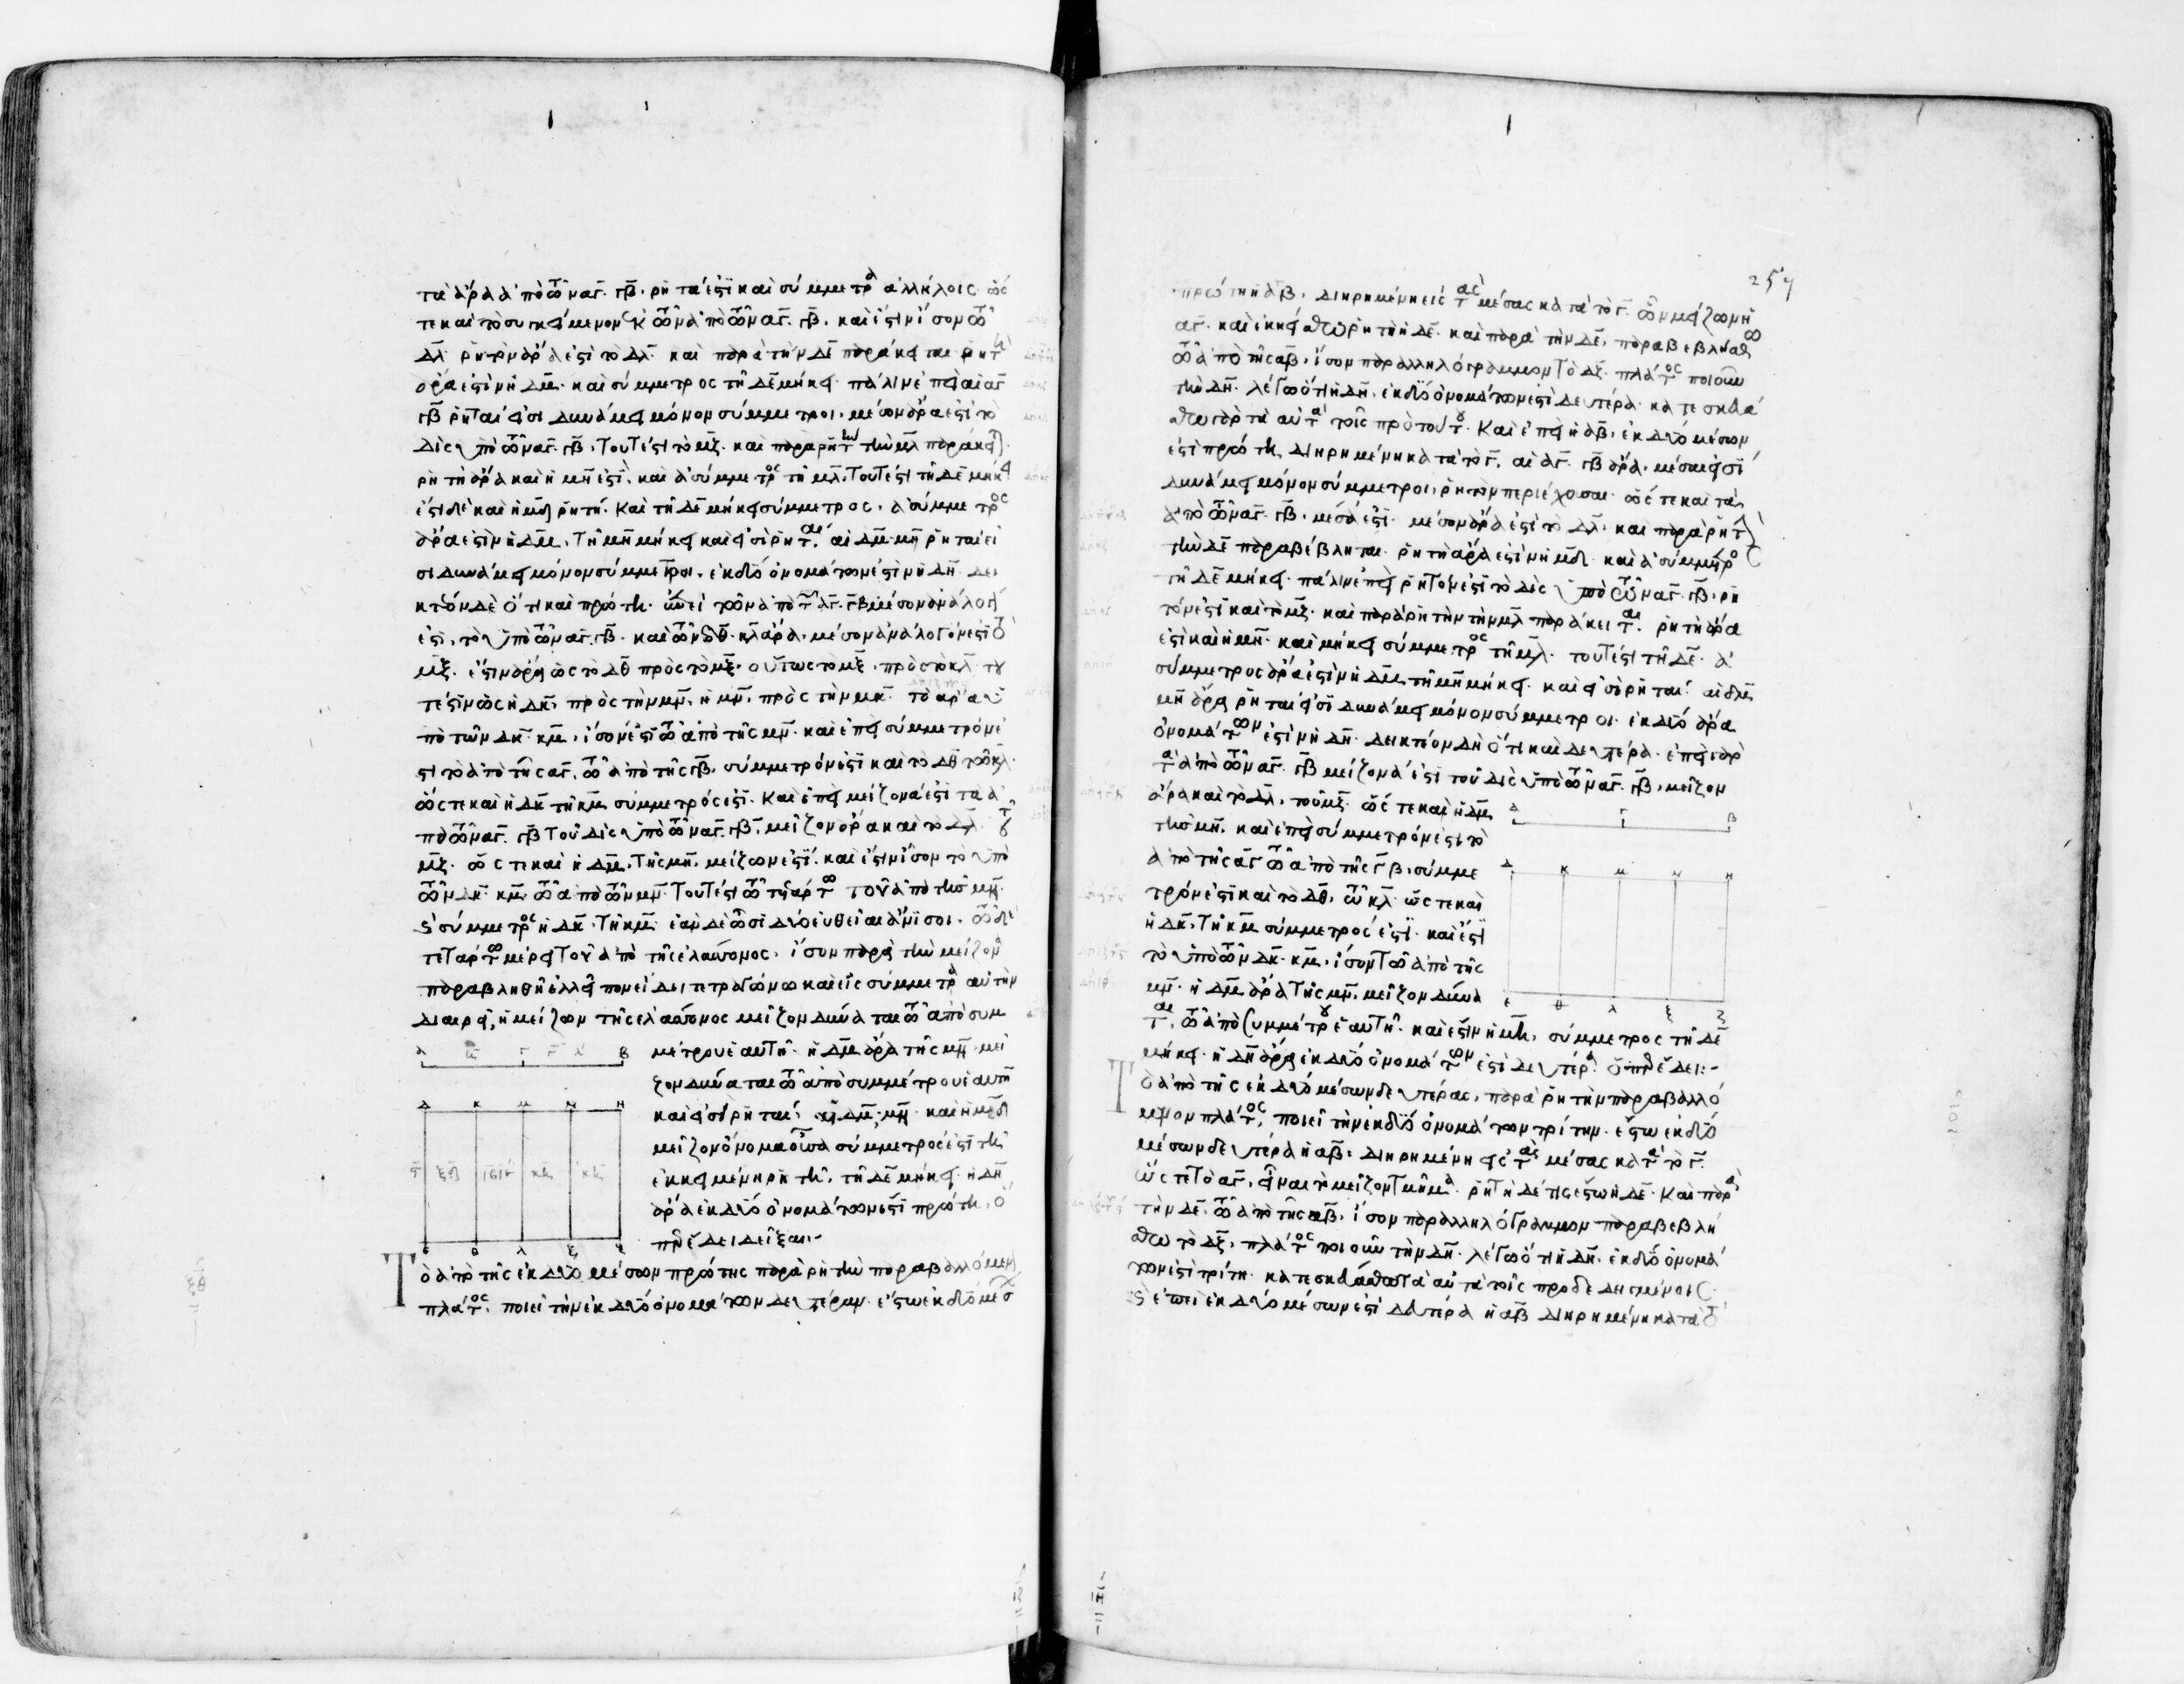 τὰ ἄρα ἀπὸ τῶν αγ, γβ, ῥητά ἐστι καὶ σύμμετρα ἀλλήλοις ὥς
τε καὶ τὸ συγκείμενον ἐκ τῶν ἀπὸ τῶν αγ, γβ. καὶ ἔστιν ἴσον τῷ
δλ. ῥητὸν ἄρα ἐστὶ τὸ δλ. καὶ παρὰ τὴν δε παράκειται ῥητὴ
ἄρα ἐστὶν ἡ δμ. καὶ σύμμετρος τῇ δε μήκει. πάλιν ἐπεὶ αἱ αγ
γβ ῥηταί εἰσι δυνάμει μόνον σύμμετροι. μέσον ἄρα ἐστὶ τὸ
δὶς ὑπὸ τῶν αγ, γβ, τουτέστι τὸ μζ. καὶ παρὰ ῥητὴν τὴν μλ παράκειται
ῥητὴ ἄρα καὶ ἡ μη ἐστὶ. καὶ ἀσύμμετρος τῇ μλ. τουτέστι τῇ δε μήκει
ἔστι δὲ καὶ ἡ μδ ῥητή. καὶ τῇ δε μήκει σύμμετρος. ἀσύμμετρος
ἄρα ἐστὶν ἡ δμ, τῇ μη μήκει καί εἰσι ῥηταί. αἱ δμ μη ῥηταί εἰ
σι δυνάμει μόνον σύμμετροι. ἐκ δύο ὀνομάτων ἐστὶν ἡ δη. δει
κτέον δὲ ὅτι καὶ πρώτη. ἐπεὶ τῶν ἀπὸ τῶν αγ. γβ μέσον ἀνάλογόν
ἐστι, τὸ ὑπὸ τῶν αγ. γβ. καὶ τῶν δθ. κλ ἄρα. μέσον ἀνάλογόν ἐστι τὸ
μξ. ἔστιν ἄρα ὡς τὸ δθ πρὸς τὸ μξ. οὕτως τὸ μξ. πρὸς τὸ κλ. του
τέστιν ὡς ἡ δκ, πρὸς τὴν μν, ἡ μν, πρὸς τὴν μκ. τὸ ἄρα ὑ
πὸ τῶν δκ. κμ, ἴσον ἐστὶ τῷ ἀπὸ τῆς μν. καὶ ἐπεὶ σύμμετρόν ἐ
στι τὸ ἀπὸ τῆς αγ, τῷ ἀπὸ τῆς γβ, σύμμετρόν ἐστι καὶ τὸ δθ τῷ κλ.
ὥστε καὶ ἡ δκ τῇ κμ σύμμετρός ἐστι. καὶ ἐπεὶ μείζονά ἐστι τὰ ἀ
πὸ τῶν αγ. γβ τοῦ δὶς ὑπὸ τῶν αγ. γβ, μεῖζον ἄρα καὶ τὸ δλ τοῦ
μζ. ὥστε καὶ ἡ δμ, τῆς μη, μείζων ἐστί. καὶ ἔστιν ἴσον τὸ ὑπὸ
τῶν δκ. κμ. τῷ ἀπὸ τῶν μν. τουτέστι τῷ τετάρτῳ τοῦ ἀπὸ τῆς μη.
καὶ σύμμετρος ἡ δκ. τῇ κμ. ἐὰν δὲ ὦσι δύο εὐθεῖαι ἄνισοι. τῷ δὲ
τετάρτῳ μέρει τοῦ ἀπὸ τῆς ἐλάσσονος, ἴσον παρὰ τὴν μείζονα
παραβληθῇ ἐλλεῖπον εἴδει τετραγώνῳ καὶ εἰς σύμμετρα αὐτὴν
διαιρεῖ, ἡ μείζων τῆς ἐλάσσονος μεῖζον δύναται τῷ ἀπὸ συμ
μέτρου ἑαυτῇ. ἡ δμ ἄρα τῆς μη. μεῖ
ζον δύναται τῷ ἀπὸ συμμέτρου ἑαυτῇ
καί εἰσι ῥηταί, αἱ δμ, μη. καὶ ἡ μδ
μεῖζον ὄνομα οὖσα σύμμετρός ἐστι τῇ
ἐκκειμένῃ ῥητῇ, τῇ δε μήκει. ἡ δη
ἄρα ἐκ δύο ὀνομάτων ἐστὶ πρώτη, ὅ
περ ἔδει δεῖξαι:-
Τὸ ἀπὸ τῆς ἐκ δύο μέσων πρώτης παρὰ ῥητὴν παραβαλλόμενον
πλάτος. ποιεῖ τὴν ἐκ δύο ὀνομάτων δευτέραν. ἔστω ἐκ δύο μέσων
257
πρώτη ἡ αβ. διῃρημένη εἰς τὰς μέσας κατὰ τὸ γ. ὧν μείζων ἡ
αγ. καὶ ἐκκείσθω ῥητὴ ἡ δε. καὶ παρὰ τὴν δε, παραβεβλήσθω
τῷ ἀπὸ τῆς αβ, ἴσον παραλληλόγραμμον τὸ δζ. πλάτος ποιοῦν
τὴν δη. λέγω ὅτι ἡ δη. ἐκ δύο ὀνομάτων ἐστὶ δευτέρα. κατεσκευά
σθω γὰρ τὰ αὐτὰ τοῖς πρὸ τούτου. καὶ ἐπεὶ ἡ αβ, ἐκ δύο μέσων
ἐστὶ πρώτη, διῃρημένη κατὰ τὸ γ, αἱ αγ. γβ ἄρα, μέσαι εἰσὶ
δυνάμει μόνον σύμμετροι, ῥητὸν περιέχουσαι. ὥστε καὶ τὰ
ἀπὸ τῶν αγ. γβ. μέσα ἐστί. μέσον ἄρα ἐστὶ τὸ δλ. καὶ παρὰ ῥητὴν
τὴν δε παραβέβληται. ῥητὴ ἄρα ἐστὶν ἡ μδ. καὶ ἀσύμμετρος
τῇ δε μήκει. πάλιν ἐπεὶ ῥητόν ἐστι τὸ δὶς ὑπὸ τῶν αγ. γβ, ῥη
τόν ἐστι καὶ τὸ μζ. καὶ παρὰ ῥητὴν τὴν μλ παράκειται. ῥητὴ ἄρα
ἐστὶ καὶ ἡ μη. καὶ μήκει σύμμετρος τῇ μλ. τουτέστι τῇ δε. ἀ
σύμμετρος ἄρα ἐστὶν ἡ δμ τῇ μη μήκει. καί εἰσι ῥηταί. αἱ δμ
μη ἄρα ῥηταί εἰσι δυνάμει μόνον σύμμετροι. ἐκ δύο ἄρα
ὀνομάτων ἐστὶν ἡ δη. δεικτέον δὴ ὅτι καὶ δευτέρα. ἐπεὶ γὰρ
τὰ ἀπὸ τῶν αγ. γβ μείζονά ἐστι τοῦ δὶς ὑπὸ τῶν αγ. γβ, μεῖζον
ἄρα καὶ τὸ δλ, τοῦ μζ. ὥστε καὶ ἡ δμ
τῆς μη. καὶ ἐπεὶ σύμμετρόν ἐστι τὸ
ἀπὸ τῆς αγ τῷ ἀπὸ τῆς γβ, σύμμε
τρόν ἐστι καὶ τὸ δθ, τῷ κλ. ὥστε καὶ
ἡ δκ. τῇ κμ σύμμετρός ἐστι. καὶ ἔστι
τὸ ὑπὸ τῶν δκ. κμ, ἴσον τῷ ἀπὸ τῆς
μν. ἡ δμ ἄρα τῆς μη, μεῖζον δύνα
ται, τῷ ἀπὸ συμμέτρου ἑαυτῇ. καὶ ἔστιν ἡ μη, σύμμετρος τῇ δε
μήκει. ἡ δη ἄρα ἐκ δύο ὀνομάτων ἐστὶ δευτέρα. ὅπερ ἔδει:-
Τὸ ἀπὸ τῆς ἐκ δύο μέσων δευτέρας, παρὰ ῥητὴν παραβαλλό
μενον πλάτος, ποιεῖ τὴν ἐκ δύο ὀνομάτων τρίτην. ἔστω ἐκ δύο
μέσων δευτέρα ἡ αβ. διῃρημένη εἰς τὰς μέσας κατὰ τὸ γ.
ὥστε τὸ αγ, εἶναι τὸ μεῖζον τμῆμα. ῥητὴ δέ τις ἔστω ἡ δε. καὶ παρὰ
τὴν δε, τῷ ἀπὸ τῆς αβ, ἴσον παραλληλόγραμμον παραβεβλή
σθω τὸ δζ, πλάτος ποιοῦν τὴν δη. λέγω ὅτι ἡ δη, ἐκ δύο ὀνομά
των ἐστὶ τρίτη. κατεσκευάσθω τὰ αὐτὰ τοῖς προδεδειγμένοις.
καὶ ἐπεὶ ἐκ δύο μέσων ἐστὶ δευτέρα ἡ αβ διῃρημένη κατὰ τὸ